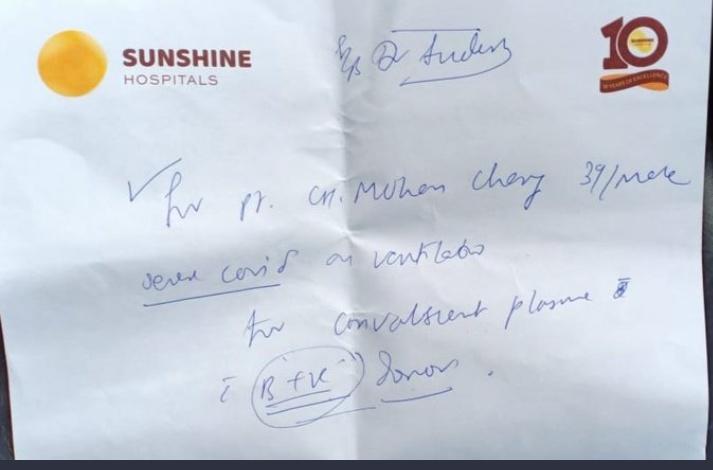 SUNSHINE
HOSPITALS
S/B Dr
10
SUNSHINE
10 YEARS OF EXCELLENCE
for pt. CH. Mohan Chary 39/male
severe covid on ventilator
for convalscent plasma
c̄ "B +ve" donor.